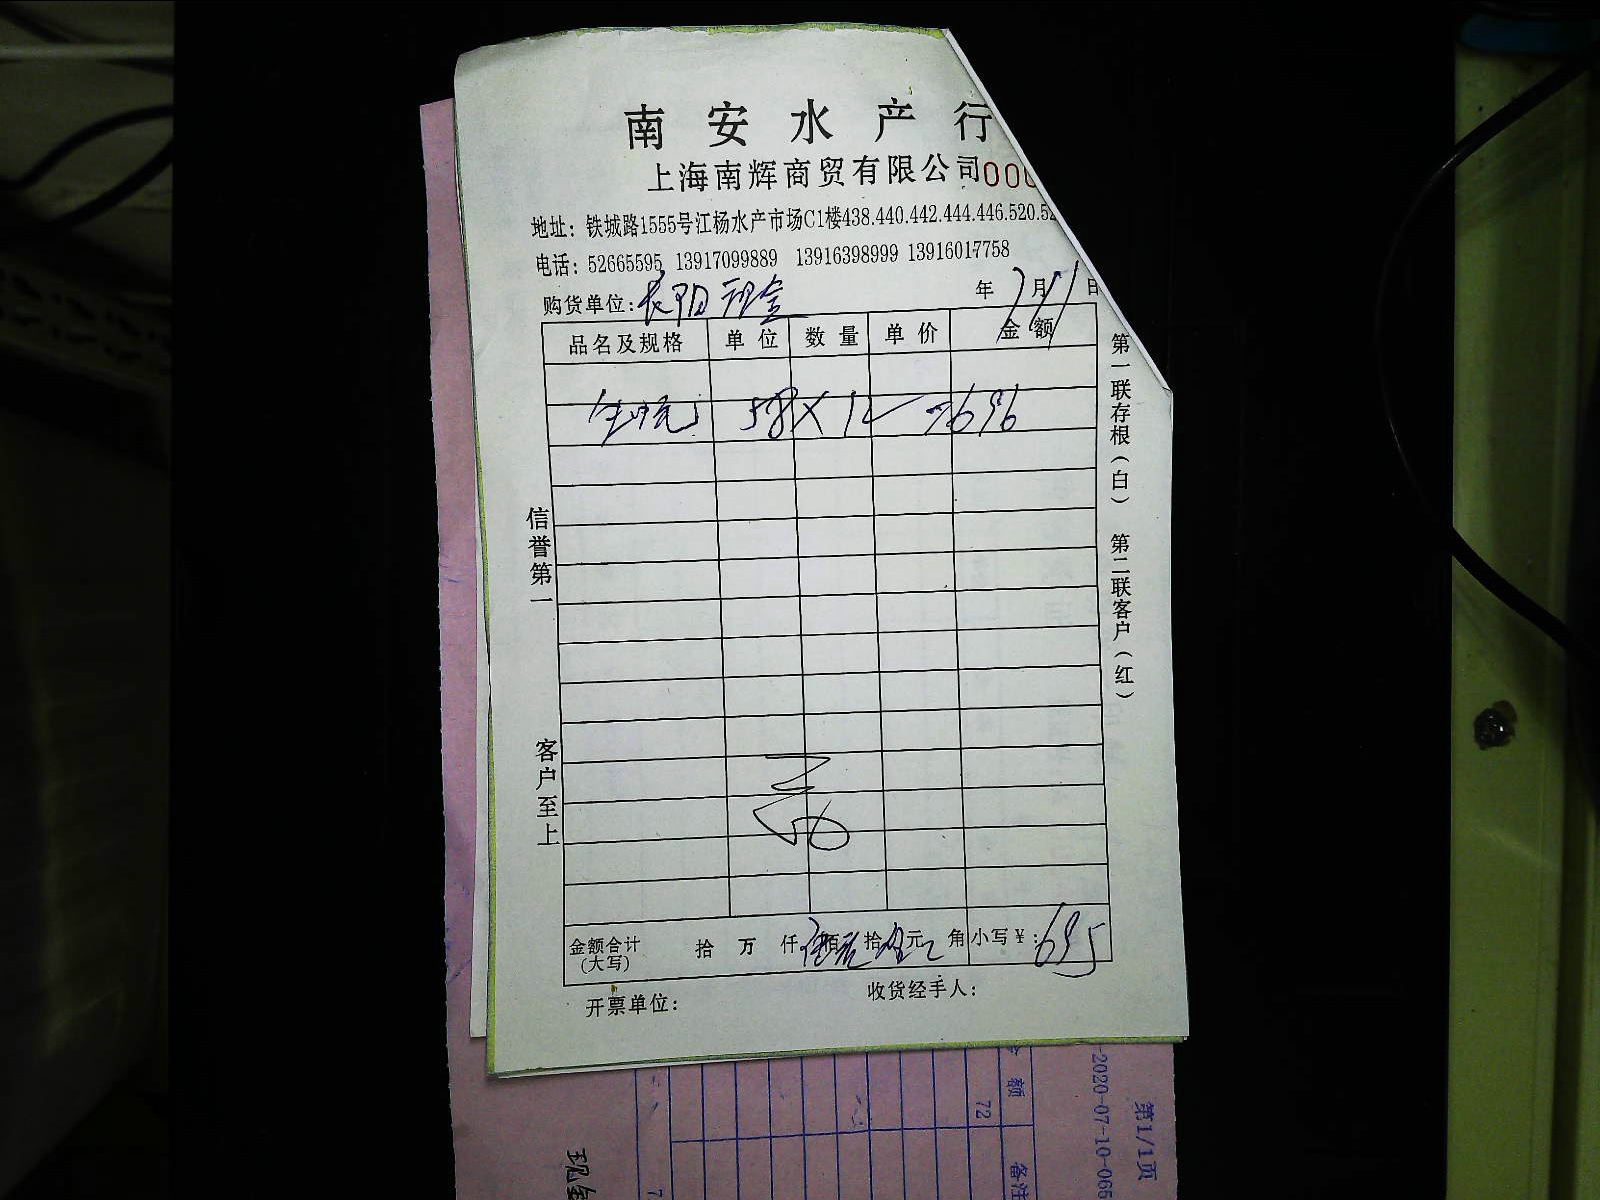 南安水产行
上海南辉商贸有限公司000
地址：铁城路1555号江杨水产市场C1楼438.440.442.444.446.520.52
电话：52665595 13917099889 13916398999 13916017758
购货单位：长阳现金 年7月11日
品名及规格 单位 数量 单价 金额
58×12 =696
信誉第一
客户至上
第一联存根（白） 第二联客户（红）
金额合计(大写) 拾 万 仟 佰 拾 元 角 小写￥：695
开票单位： 收货经手人：
金额
72
备注
-2020-07-10-066
第1/1页
现金
7